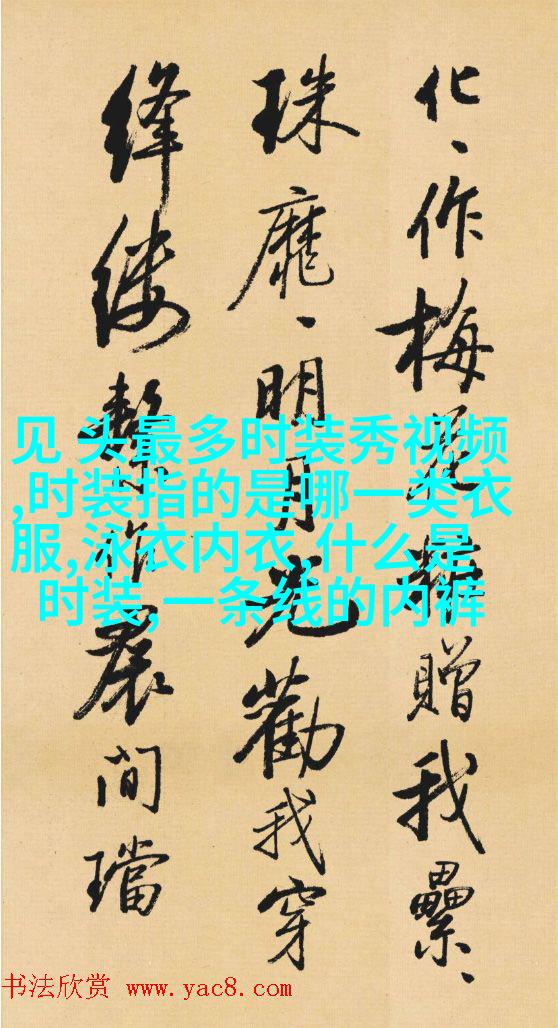 化、作梅花赠我累、
珠靡、明月光劝我穿
缝缕繫作裙间璫
见 头最多时装秀视频
,时装指的是哪一类衣
服,泳衣内衣,什么是
时装,一条线的内裤
书法欣赏 www.yac8.com